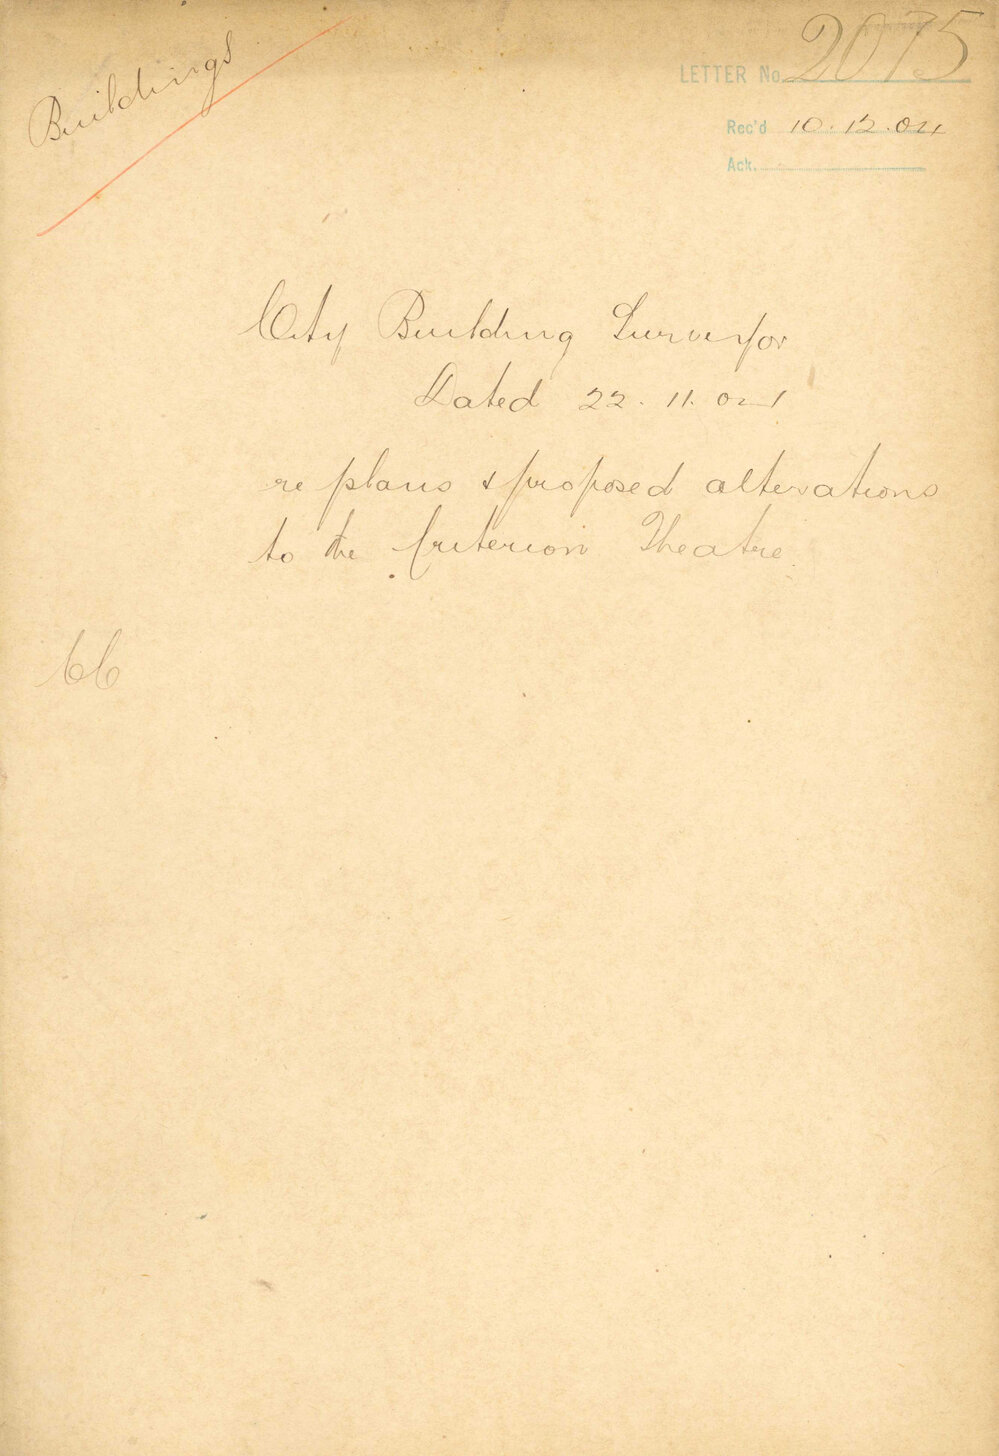 Buildings
LETTER No 2075
Rec'd 10.12.04
Ack.
City Building Surveyor
Dated 22.11.04
re plans & proposed alterations
to the Criterion Theatre.